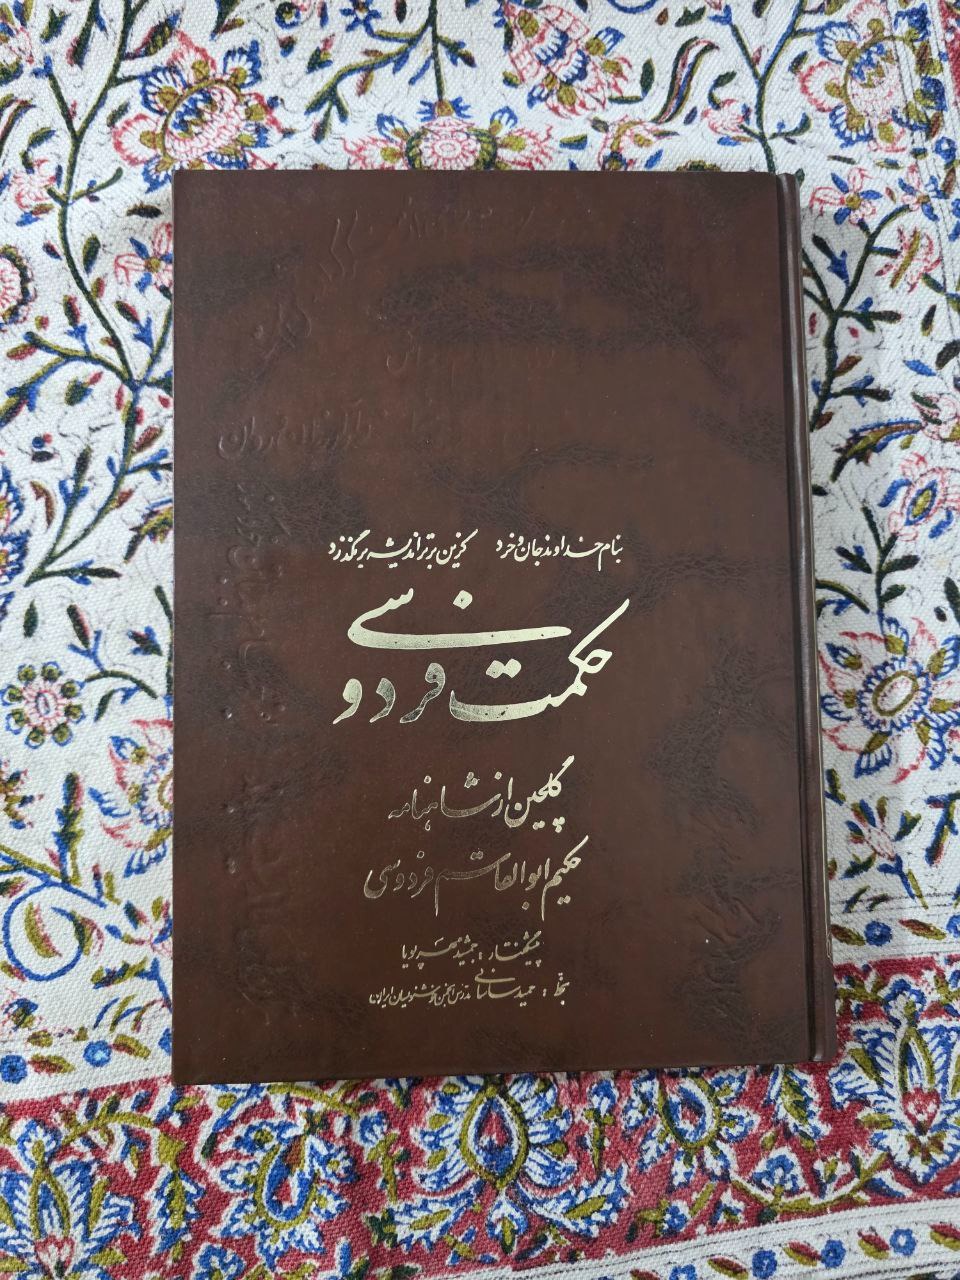 بنام خداوند جان و خرد کزین برتر اندیشه برنگذرد
حکمت فردوسی
گلچین از شاهنامه
حکیم ابوالقاسم فردوسی
پیشگفتار : جمشید مهرپویا
بخط : حمید ساسانی مدرس انجمن خوشنویسان ایران